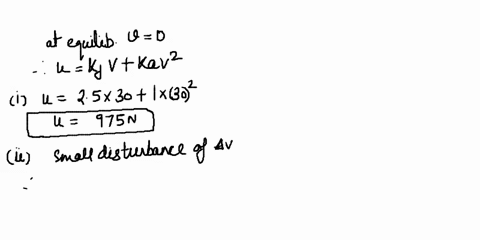 at equilib. v̇=0
∴ u = Kf V + Ka v²
(i) u = 2.5×30 + 1×(30)²
u = 975N
(ii) small disturbance of Δv
∴